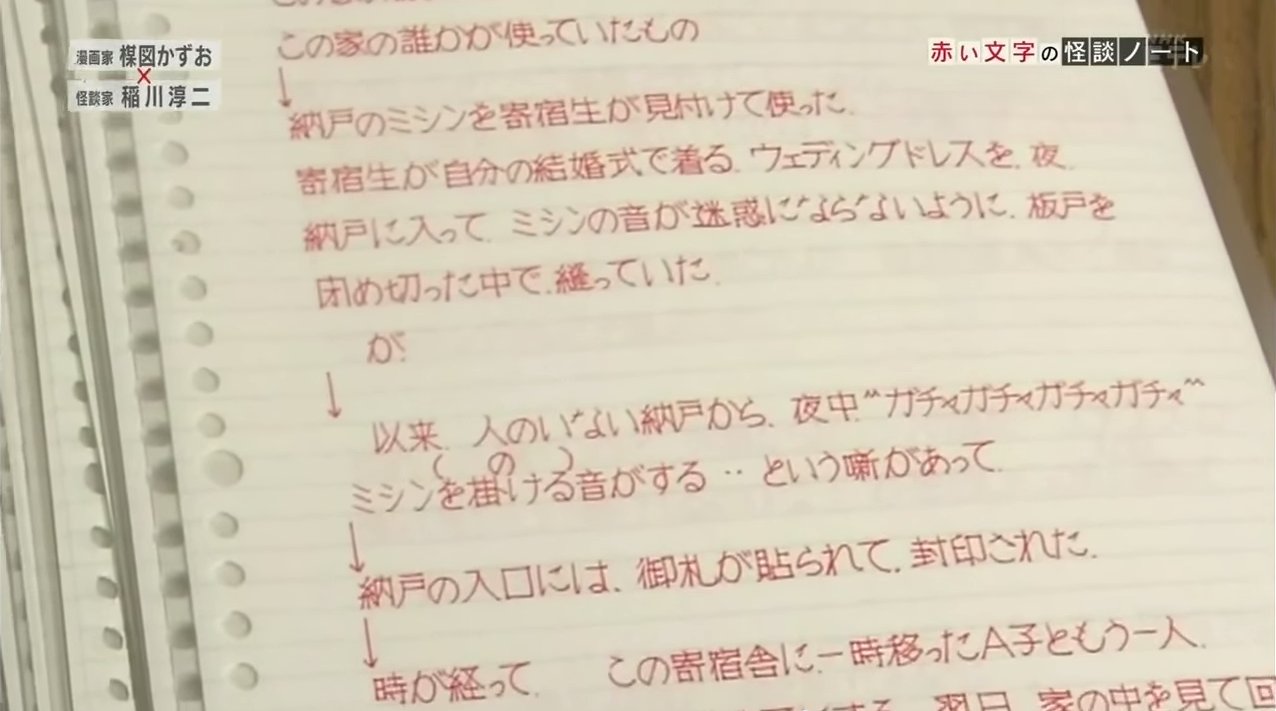 漫画家 楳図かずお
×
怪談家 稲川淳二
赤い文字の怪談ノート
この家の誰かが使っていたもの
↓
納戸のミシンを寄宿生が見付けて使った.
寄宿生が自分の結婚式で着る.ウェディングドレスを.夜.
納戸に入って.ミシンの音が迷惑にならないように.板戸を
閉め切った中で.縫っていた.
が.
↓
以来.人のいない納戸から.夜中“ガチャガチャガチャガチャ”
(の)
ミシンを掛ける音がする‥という噺があって.
↓
納戸の入口には.御札が貼られて.封印された.
↓
時が経って. この寄宿舎に.一時移ったA子ともう一人.
翌日.家の中を見て回